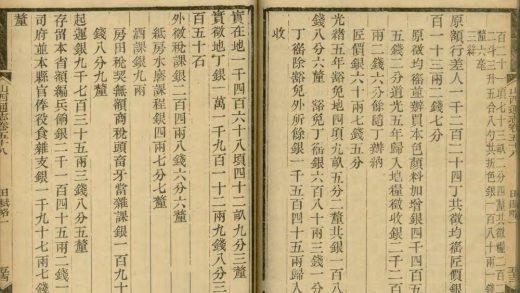 山西通志卷五十八 田賦略一
三錢
原額行差人一千二百二十四丁共徵均徭匠價銀
百一十三兩二錢七分
原徵均徭並辦買本色顏料加增銀四千四百五
五錢二分道光五年歸入地糧徵收銀二千二百
兩二錢六分餘隨丁辦納
匠價銀六十兩七錢五分
光緒五年豁免地四頃九畝五分二釐共銀一百八
錢八分六釐 豁免丁徭銀六百八十兩三錢一分
丁徭除豁免外所餘銀一千五百四十五兩歸入
收
實在地一千四百六十八頃四十二畝九分三釐
實徵地丁銀一萬一千九百一十二兩九錢八分三
百五十石
外徵稅課銀二百四兩八錢六分六釐
紙房水磨課程銀四兩七分七釐
酒課銀九兩
房田稅契無額商稅頭畜牙當雜課銀一百九十
錢八分九釐
起運銀九千七百三十五兩三錢八分五釐
存留本省額編兵餉銀二千一百四十五兩二錢一
司府並本縣官俸役食雜支銀一千九十七兩七錢
釐
山西通志卷五十八 田賦略一